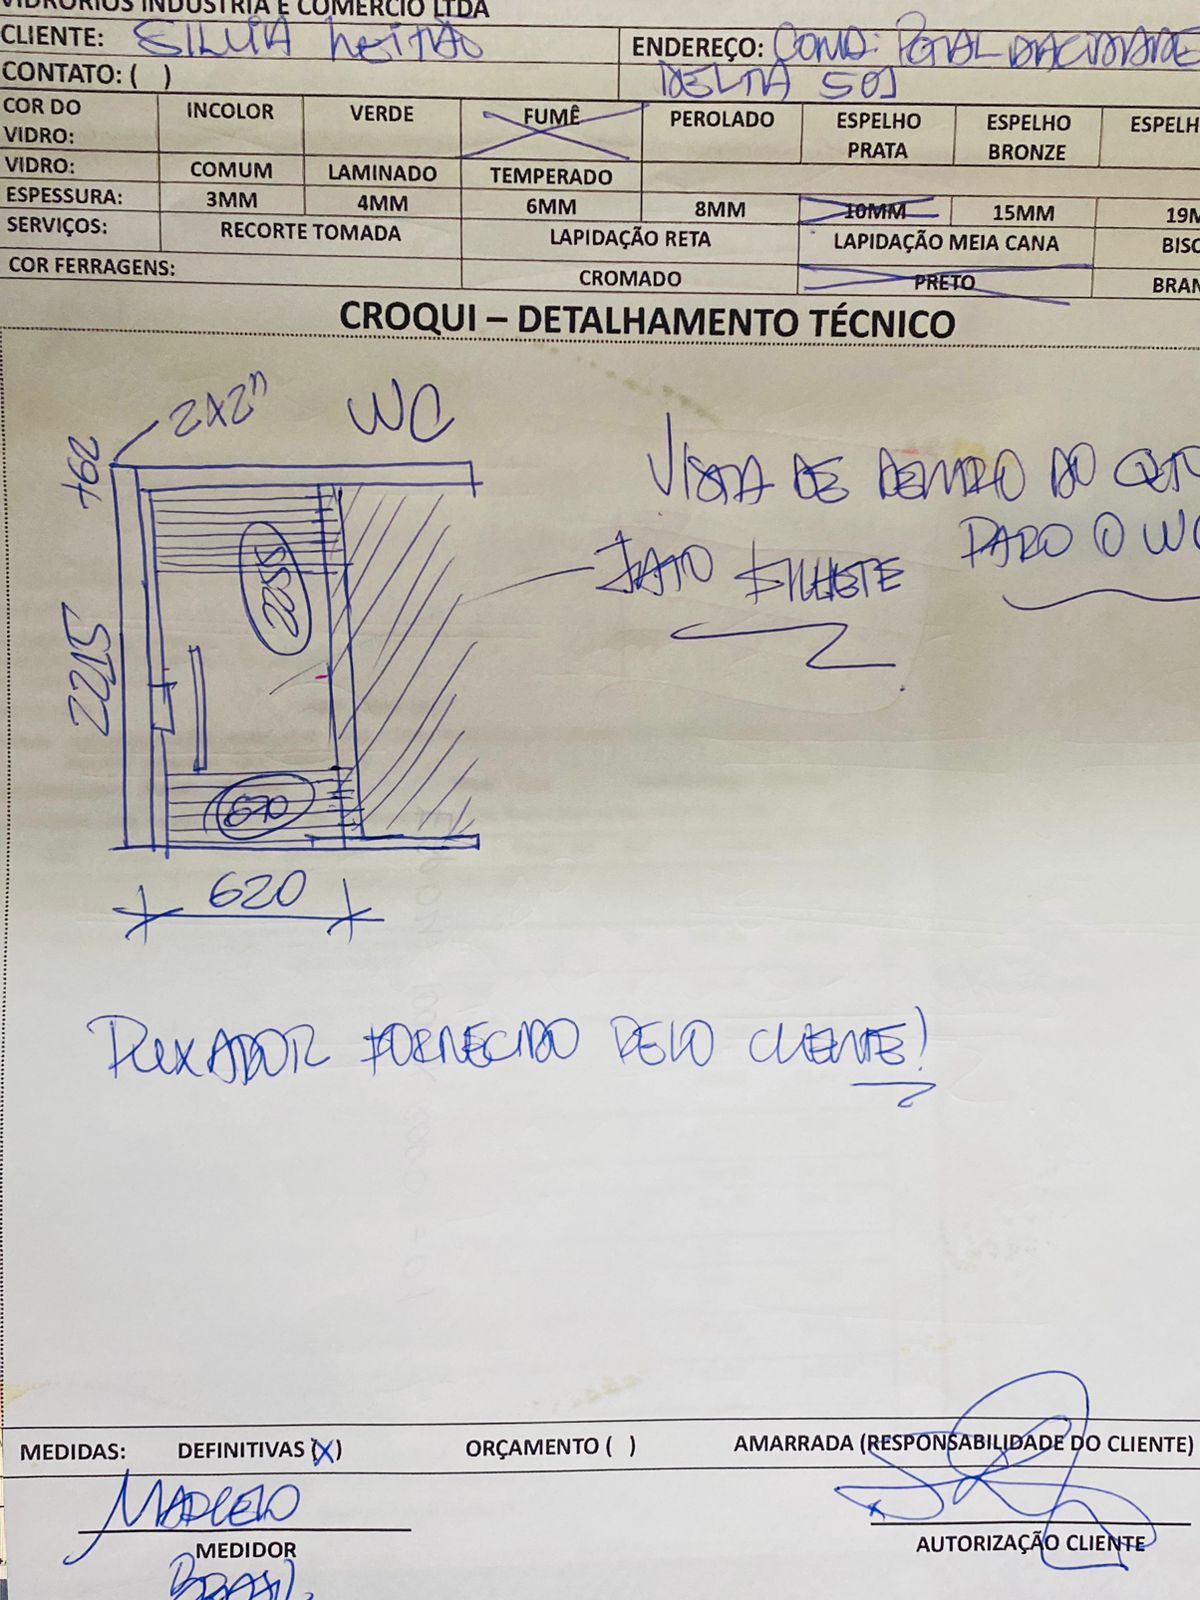 VIDRORIOS INDUSTRIA E COMERCIO LTDA
CLIENTE: SILVIA LEITÃO
ENDEREÇO: COND: POTAL DA CIDADE
CONTATO: ( )
DELTA 501
COR DO VIDRO: INCOLOR VERDE FUMÊ PEROLADO ESPELHO PRATA ESPELHO BRONZE ESPELH
VIDRO: COMUM LAMINADO TEMPERADO
ESPESSURA: 3MM 4MM 6MM 8MM 10MM 15MM 19M
SERVIÇOS: RECORTE TOMADA LAPIDAÇÃO RETA LAPIDAÇÃO MEIA CANA BISO
COR FERRAGENS: CROMADO PRETO BRAN
CROQUI – DETALHAMENTO TÉCNICO
2X2"
WC
VISTA DE DENTRO DO QTO
PARO O WC
JATO SILHETE
2255
670
620
PUXADOR FORNECIDO PELO CLIENTE!
MEDIDAS: DEFINITIVAS (X) ORÇAMENTO ( ) AMARRADA (RESPONSABILIDADE DO CLIENTE)
MARCELO
MEDIDOR
AUTORIZAÇÃO CLIENTE
BRASIL.